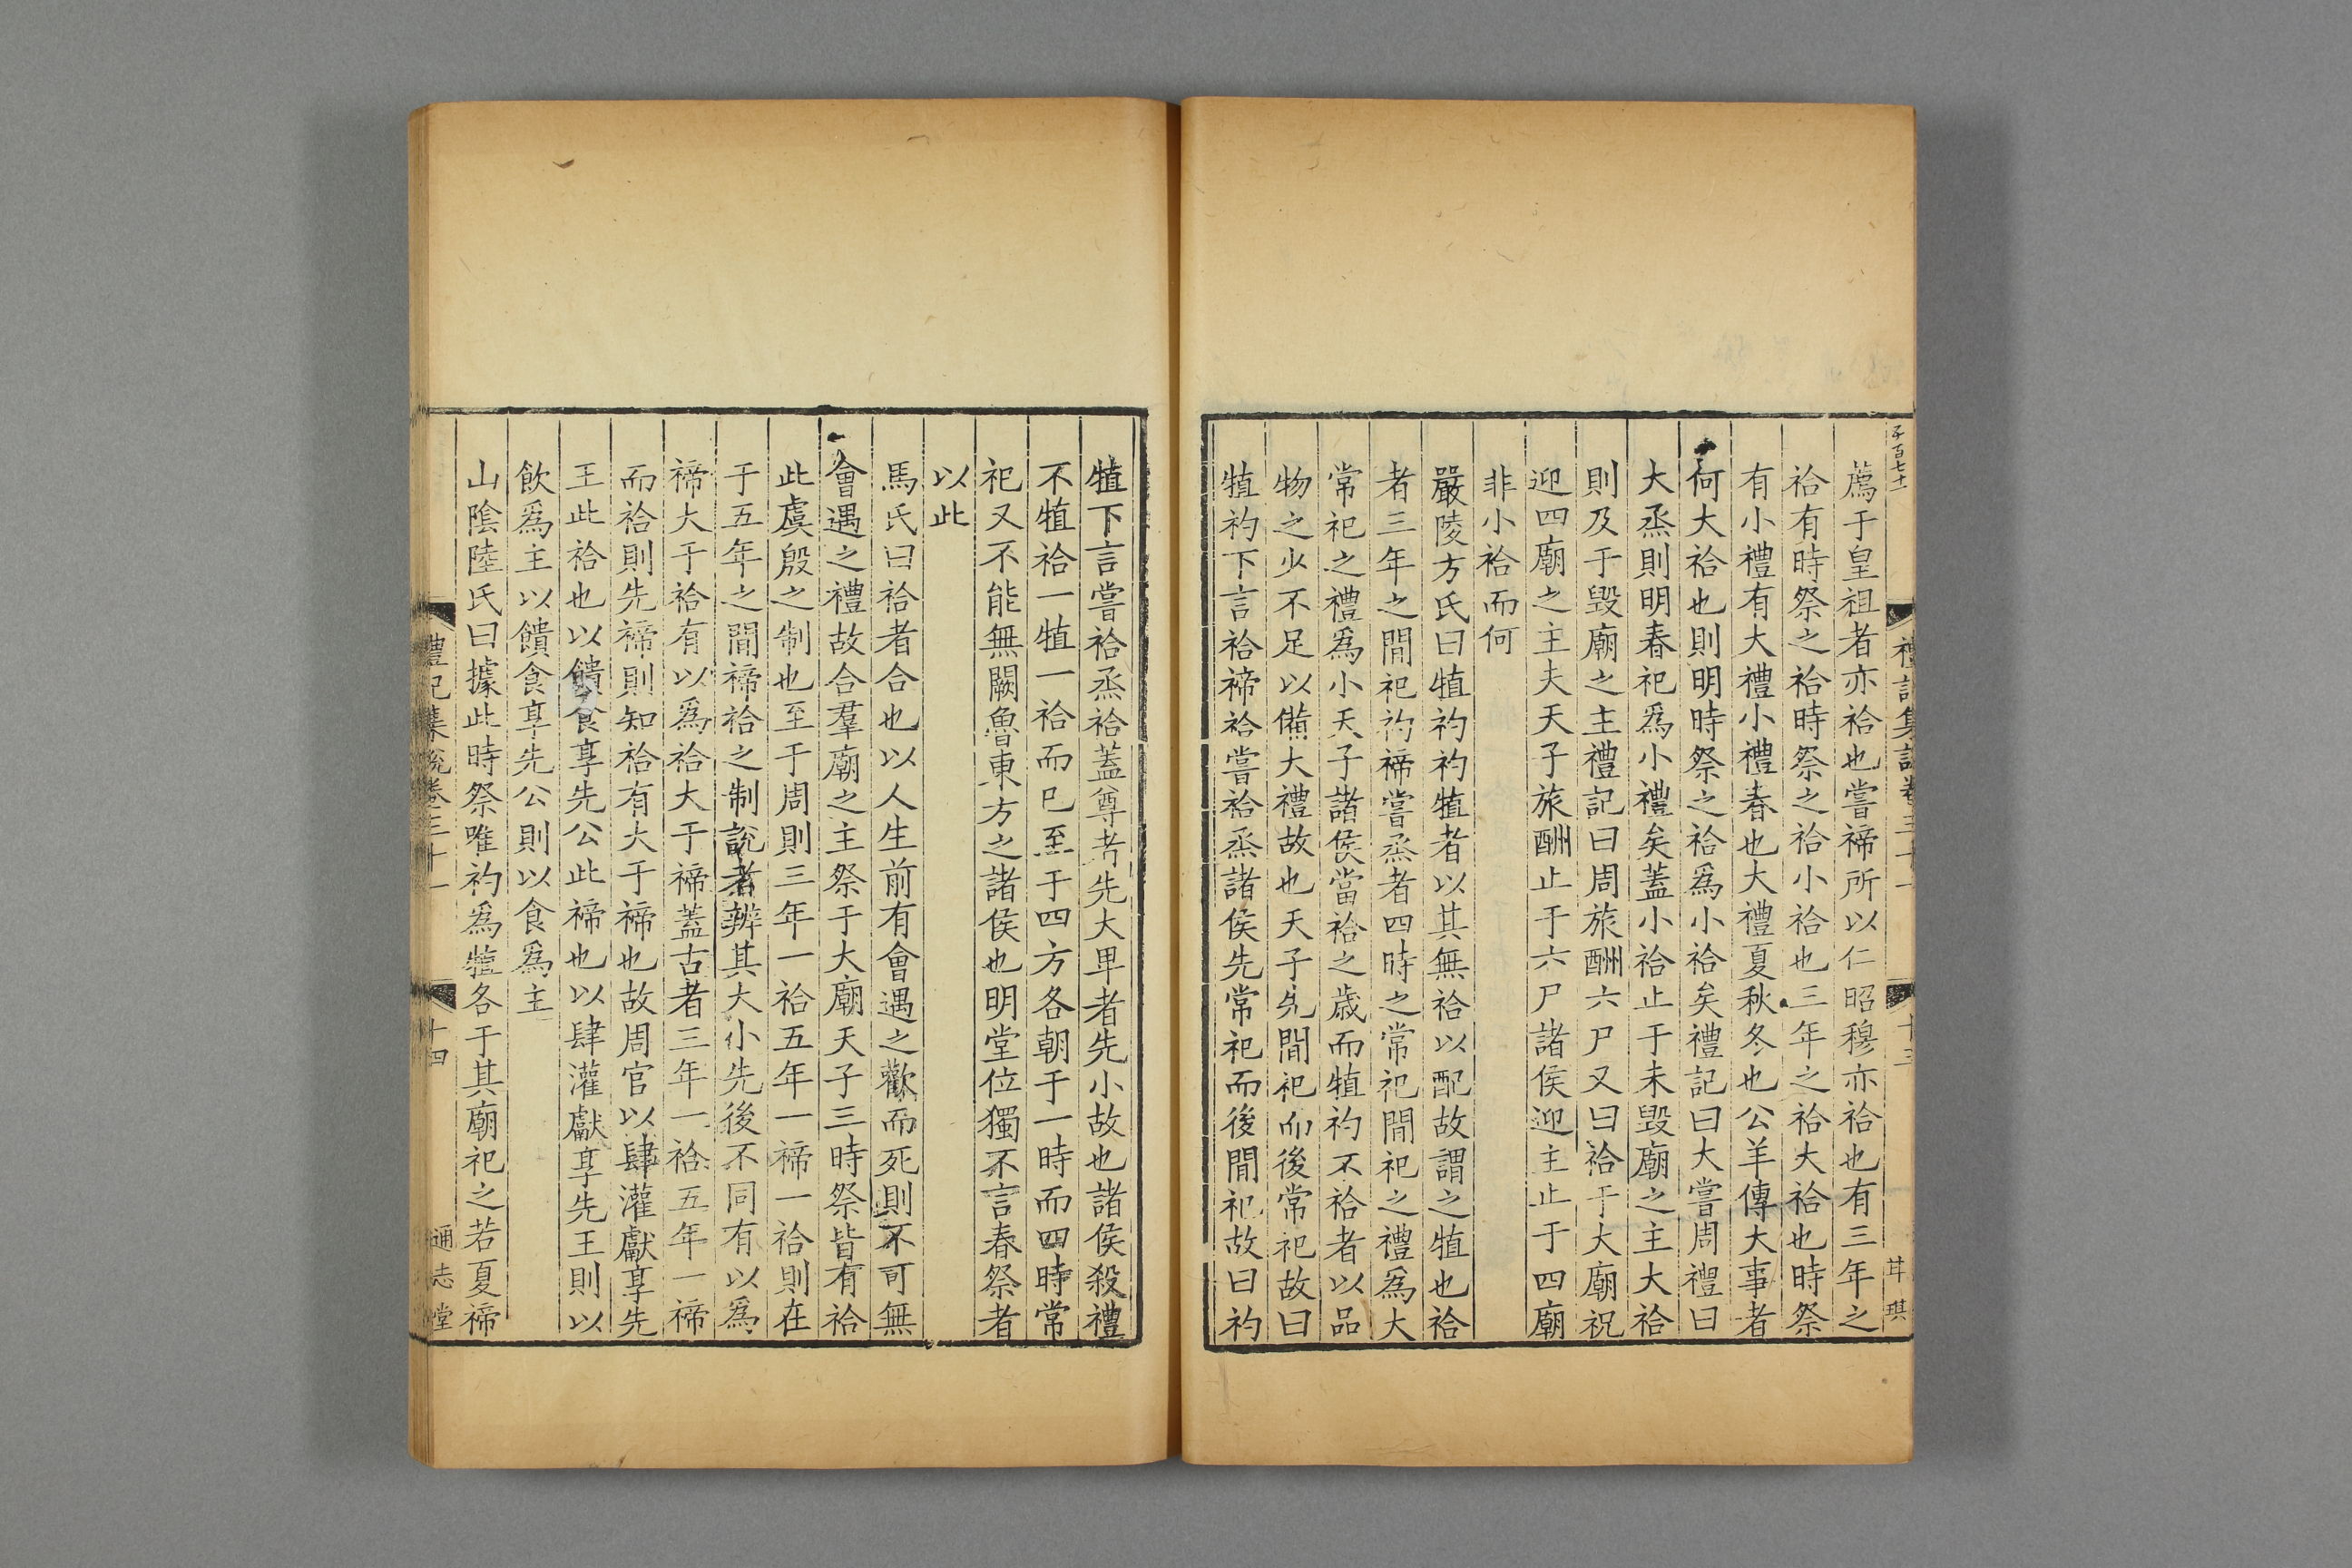 薦于皇祖者亦祫也嘗禘所以仁昭穆亦祫也有三年之
祫有時祭之祫時祭之祫小祫也三年之祫大祫也時祭
有小禮有大禮小禮春也大禮夏秋冬也公羊傳大事者
何大祫也則明時祭之祫爲小祫矣禮記曰大嘗周禮曰
大烝則明春祀爲小禮矣蓋小祫止于未毁廟之主大祫
則及于毁廟之主禮記曰周旅酬六尸又曰祫于大廟祝
迎四廟之主夫天子旅酬止于六尸諸侯迎主止于四廟
非小祫而何
嚴陵方氏曰犆礿礿犆者以其無祫以配故謂之犆也祫
者三年之閒祀礿禘嘗烝者四時之常祀閒祀之禮爲大
常祀之禮爲小天子諸侯當祫之歲而犆礿不祫者以品
物之少不足以備大禮故也天子先閒祀而後常祀故曰
犆礿下言祫禘祫嘗祫烝諸侯先常祀而後閒祀故曰礿
犆下言嘗祫烝祫蓋尊者先大卑者先小故也諸侯殺禮
不犆祫一犆一祫而巳至于四方各朝于一時而四時常
祀又不能無闕魯東方之諸侯也明堂位獨不言春祭者
以此
馬氏曰祫者合也以人生前有會遇之歡而死則不可無
會遇之禮故合羣廟之主祭于大廟天子三時祭皆有祫
此虞殷之制也至于周則三年一祫五年一禘一祫則在
于五年之間禘祫之制說者辨其大小先後不同有以爲
禘大于祫有以爲祫大于禘蓋古者三年一祫五年一禘
而祫則先禘則知祫有大于禘也故周官以肆灌獻享先
王此祫也以饋食享先公此禘也以肆灌獻享先王則以
飲爲主以饋食享先公則以食爲主
山陰陸氏曰據此時祭唯礿爲犆各于其廟祀之若夏禘
禮記集說卷三十一
十四
通志堂